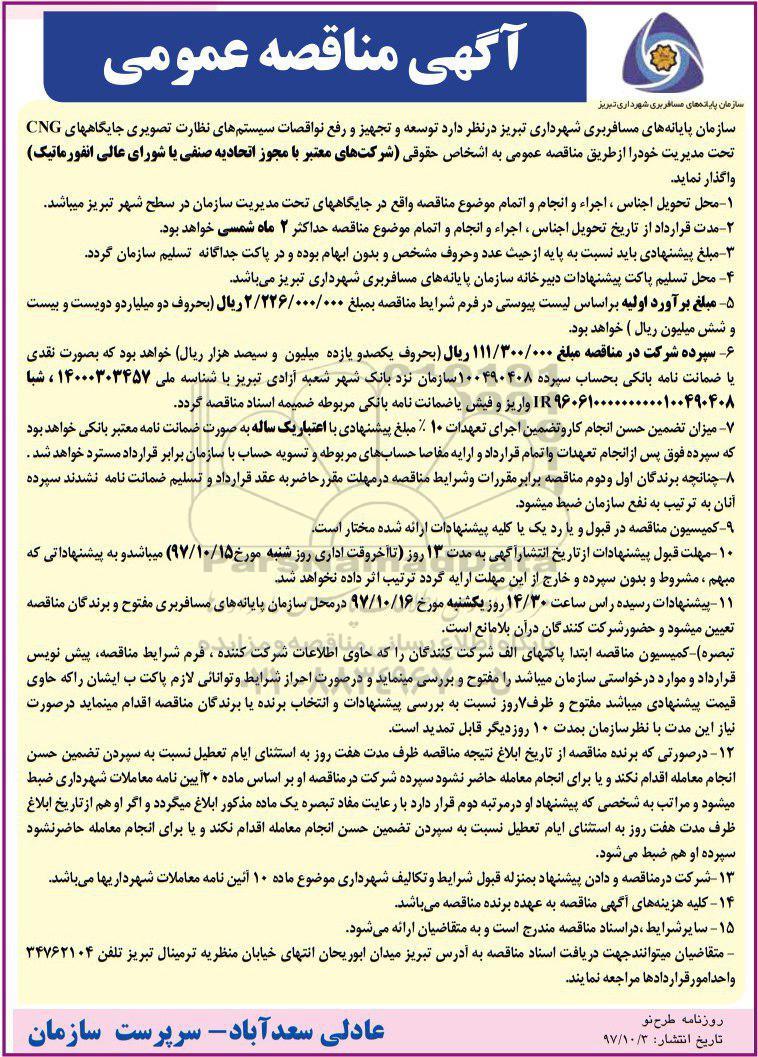 آگهی مناقصه عمومی
سازمان پایانه‌های مسافربری شهرداری تبریز
سازمان پایانه‌های مسافربری شهرداری تبریز درنظر دارد توسعه و تجهیز و رفع نواقصات سیستم‌های نظارت تصویری جایگاههای CNG
تحت مدیریت خودرا ازطریق مناقصه عمومی به اشخاص حقوقی (شرکت‌های معتبر با مجوز اتحادیه صنفی یا شورای عالی انفورماتیک)
واگذار نماید.
۱-محل تحویل اجناس ، اجراء و انجام و اتمام موضوع مناقصه واقع در جایگاههای تحت مدیریت سازمان در سطح شهر تبریز میباشد.
۲-مدت قرارداد از تاریخ تحویل اجناس ، اجراء و انجام و اتمام موضوع مناقصه حداکثر ۲ ماه شمسی خواهد بود.
۳-مبلغ پیشنهادی باید نسبت به پایه ازحیث عدد وحروف مشخص و بدون ابهام بوده و در پاکت جداگانه تسلیم سازمان گردد.
۴- محل تسلیم پاکت پیشنهادات دبیرخانه سازمان پایانه‌های مسافربری شهرداری تبریز می‌باشد.
۵- مبلغ برآورد اولیه براساس لیست پیوستی در فرم شرایط مناقصه بمبلغ ۲/۲۲۶/۰۰۰/۰۰۰ ریال (بحروف دو میلیاردو دویست و بیست
و شش میلیون ریال ) خواهد بود.
۶- سپرده شرکت در مناقصه مبلغ ۱۱۱/۳۰۰/۰۰۰ ریال (بحروف یکصدو یازده میلیون و سیصد هزار ریال) خواهد بود که بصورت نقدی
یا ضمانت نامه بانکی بحساب سپرده ۱۰۰۴۹۰۴۰۸سازمان نزد بانک شهر شعبه آزادی تبریز با شناسه ملی ۱۴۰۰۰۳۰۳۴۵۷ ، شبا
IR۹۶۰۶۱۰۰۰۰۰۰۰۰۰۱۰۰۴۹۰۴۰۸ واریز و فیش یاضمانت نامه بانکی مربوطه ضمیمه اسناد مناقصه گردد.
۷- میزان تضمین حسن انجام کاروتضمین اجرای تعهدات ۱۰ ٪ مبلغ پیشنهادی با اعتباریک ساله به صورت ضمانت نامه معتبر بانکی خواهد بود
که سپرده فوق پس ازانجام تعهدات واتمام قرارداد و ارایه مفاصا حساب‌های مربوطه و تسویه حساب با سازمان برابر قرارداد مسترد خواهد شد .
۸-چنانچه برندگان اول ودوم مناقصه برابرمقررات وشرایط مناقصه درمهلت مقررحاضربه عقد قرارداد و تسلیم ضمانت نامه نشدند سپرده
آنان به ترتیب به نفع سازمان ضبط میشود.
۹-کمیسیون مناقصه در قبول و یا رد یک یا کلیه پیشنهادات ارائه شده مختار است.
۱۰-مهلت قبول پیشنهادات ازتاریخ انتشارآگهی به مدت ۱۳ روز (تاآخروقت اداری روز شنبه مورخ۹۷/۱۰/۱۵) میباشدو به پیشنهاداتی که
مبهم ، مشروط و بدون سپرده و خارج از این مهلت ارایه گردد ترتیب اثر داده نخواهد شد.
۱۱-پیشنهادات رسیده راس ساعت ۱۴/۳۰ روز یکشنبه مورخ ۹۷/۱۰/۱۶ درمحل سازمان پایانه‌های مسافربری مفتوح و برندگان مناقصه
تعیین میشود و حضورشرکت کنندگان درآن بلامانع است.
تبصره)-کمیسیون مناقصه ابتدا پاکتهای الف شرکت کنندگان را که حاوی اطلاعات شرکت کننده ، فرم شرایط مناقصه، پیش نویس
قرارداد و موارد درخواستی سازمان میباشد را مفتوح و بررسی مینماید و درصورت احراز شرایط وتوانائی لازم پاکت ب ایشان راکه حاوی
قیمت پیشنهادی میباشد مفتوح و ظرف۷روز نسبت به بررسی پیشنهادات و انتخاب برنده یا برندگان مناقصه اقدام مینماید درصورت
نیاز این مدت با نظرسازمان بمدت ۱۰ روزدیگر قابل تمدید است.
۱۲- درصورتی که برنده مناقصه از تاریخ ابلاغ نتیجه مناقصه ظرف مدت هفت روز به استثنای ایام تعطیل نسبت به سپردن تضمین حسن
انجام معامله اقدام نکند و یا برای انجام معامله حاضر نشود سپرده شرکت درمناقصه او بر اساس ماده ۲۰آیین نامه معاملات شهرداری ضبط
میشود و مراتب به شخصی که پیشنهاد او درمرتبه دوم قرار دارد با رعایت مفاد تبصره یک ماده مذکور ابلاغ میگردد و اگر او هم ازتاریخ ابلاغ
ظرف مدت هفت روز به استثنای ایام تعطیل نسبت به سپردن تضمین حسن انجام معامله اقدام نکند و یا برای انجام معامله حاضرنشود
سپرده او هم ضبط می‌شود.
۱۳-شرکت درمناقصه و دادن پیشنهاد بمنزله قبول شرایط وتکالیف شهرداری موضوع ماده ۱۰ آئین نامه معاملات شهرداریها می‌باشد.
۱۴-کلیه هزینه‌های آگهی مناقصه به عهده برنده مناقصه می‌باشد.
۱۵- سایرشرایط ،دراسناد مناقصه مندرج است و به متقاضیان ارائه می‌شود.
- متقاضیان میتوانندجهت دریافت اسناد مناقصه به آدرس تبریز میدان ابوریحان انتهای خیابان منظریه ترمینال تبریز تلفن ۳۴۷۶۲۱۰۴
واحدامورقراردادها مراجعه نمایند.
عادلی سعدآباد- سرپرست سازمان
روزنامه طرح‌نو
تاریخ انتشار: ۹۷/۱۰/۳
ParsNamadData
پایگاه اطلاع رسانی مناقصه و مزایده
۰۲۱-۸۸۳۴۹۶۷۰-۵